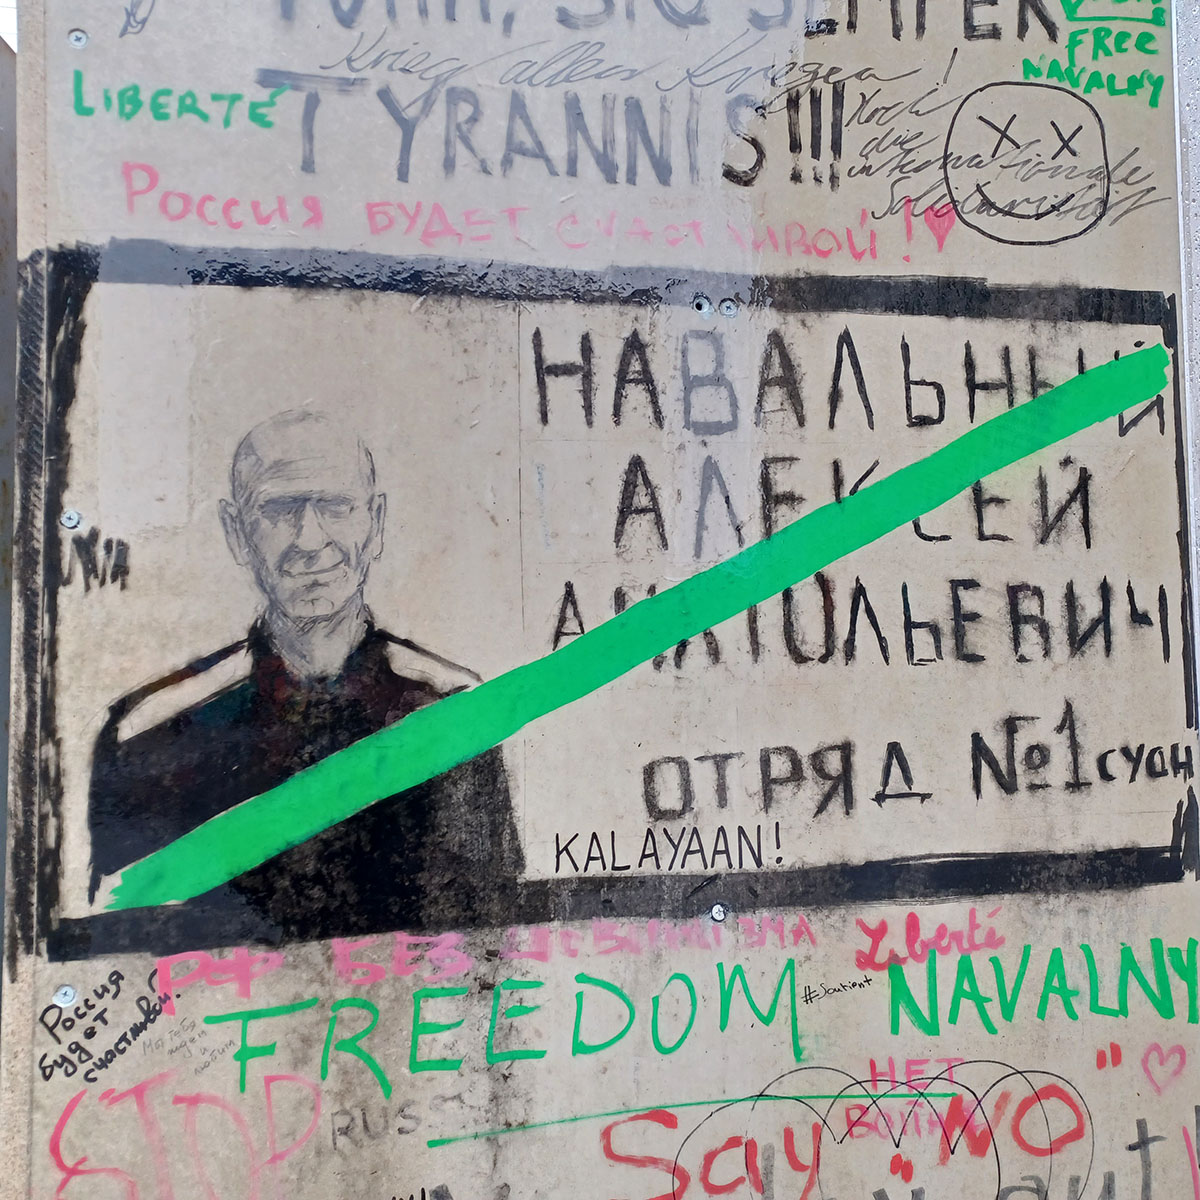 SIC SEMPER
TYRANNIS!!!
Krieg allen Kriegen!
FREE
NAVALNY
LIBERTÉ
Hoch
die
internationale
Solidarität
РОССИЯ БУДЕТ СЧАСТЛИВОЙ!♥
НАВАЛЬНЫЙ
АЛЕКСЕЙ
АНАТОЛЬЕВИЧ
ОТРЯД №1 СУОН
KALAYAAN!
РФ БЕЗ
Liberté
FREEDOM NAVALNY
#Soutient
Россия
будет
счастливой!
Мы тебя
ждём
и
любим
НЕТ
ВОЙНЕ
STOP
RUSS
Say "NO"